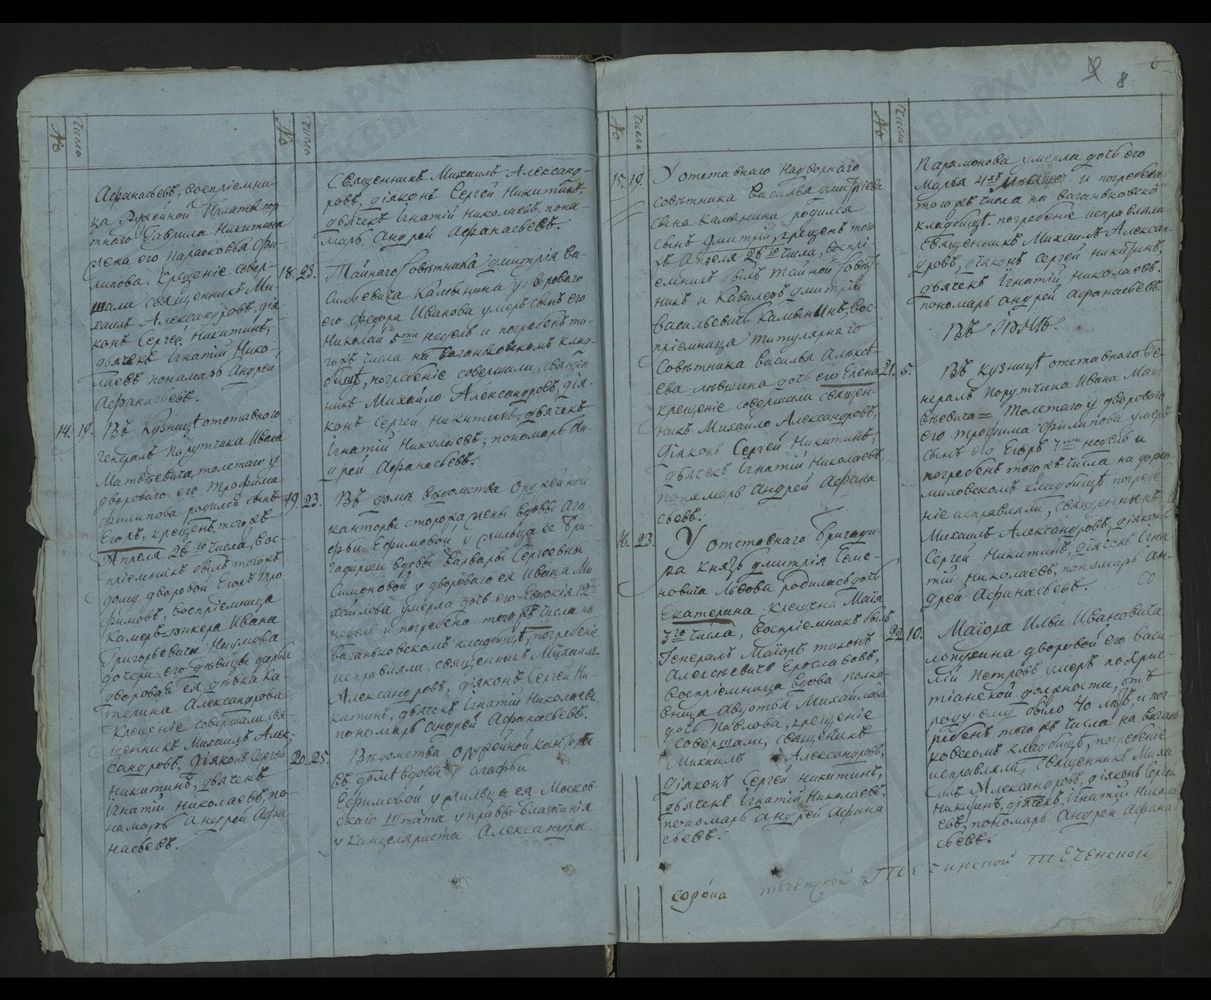 8
№
число
№
число
Афанасьевъ, воспрiемни-
ца Оружейной Палаты
Гаврила Никитина
жена его Парасковья Фи-
липова. Крещенiе совер-
шали священникъ Ми-
хаилъ Александровъ, дiя-
конъ Сергей Никитинъ,
дьячекъ Игнатiй Нико-
лаевъ пономарь Андрей
Афанасьевъ.
14. 19. Въ Кузницѣ отставнаго
Генералъ Порутчика Ивана
Матвѣевича толстаго у
дворового его Трофима
Филипова родился сынъ
Егоръ, крещенъ того жъ
Апреля 26го числа, вос-
прiемникъ былъ того жъ
дому дворовой Егоръ Тро-
фимовъ, воспрiемница
Камеръ-
Ивана
Григорьевича Наумова
дочери его дѣвицы Дарьи
дворовая ея дѣвка Ка-
терина Александрова.
Крещенiе совершали свя-
щенникъ Михаилъ Алек-
сандровъ, дiяконъ Сергей
Никитинъ, дьячекъ
Игнатiй Николаевъ, по-
номарь Андрей Афа-
насьевъ.
Священникъ Михаилъ Александ-
ровъ, дiяконъ Сергей Никитинъ,
дьячекъ Игнатiй Николаевъ, поно-
марь Андрей Афанасьевъ.
18. 23. Тайнаго Совѣтника Дмитрiя Ва-
сильевича Камынина у дворового
его Федора Иванова умеръ сынъ его
Николай 5ти недель и погребенъ то-
го жъ числа на ваганьковскомъ клад-
бищѣ, погребенiе совершали, священ-
никъ Михайло Александровъ, дiя-
конъ Сергей Никитинъ, дьячекъ
Игнатiй Николаевъ, пономарь Ан-
дрей Афанасьевъ.
19. 23. Въ домѣ вѣдомства Оружейной
канторы сторожа жены вдовы Ага-
фьи Ефимовой у жильца ея Бри-
гадирши вдовы Варвары Сергеевны
Симоновой у дворового ея Ивана Ми-
хайлова умерла дочь его Евдокiя 12
недель и погребена того жъ числа на
Ваганьковскомъ кладбищѣ, погребенiе
исправляли, священникъ Михаилъ
Александровъ, дiяконъ Сергей Ни-
китинъ, дьячекъ Игнатiй Николаевъ
пономарь Андрей Афанасьевъ.
20. 25. Вѣдомства Оружейной канторы
въ домѣ вдовы Агафьи
Ефимовой у жильца ея Москов-
скаго Штата управы благочинiя
у канцеляриста Александра
№
число
№
число
15. 19. У отставнаго Надворнаго
совѣтника Василья Дмитрiева
сына Камынина родился
сынъ Дмитрiй, крещенъ того
жъ Апреля 26го числа, воспрi-
емникъ былъ тайной Совѣт-
никъ и Кавалеръ Дмитрiй
Васильевичь Камынинъ, вос-
прiемница титулярнаго
Совѣтника Василья Алексѣ-
ева Лѣвшина дочь его Елена
крещенiе совершали священ-
никъ Михайло Александровъ,
Дiяконъ Сергей Никитинъ,
дьячекъ Игнатiй Николаевъ,
пономарь Андрей Афана-
сьевъ.
16. 23. У отставнаго Бригади-
ра Князь Дмитрiя Семе-
новича Львова родилась дочь
Екатерина. крещена Маiя
3го числа, воспрiемникъ былъ
Генералъ Маiоръ
Алексѣевичь Ерославовъ,
воспрiемница вдова полко
вница Авдотья Михайлова
дочь Павлова, крещенiе
совершали, священникъ
Михаилъ Александровъ,
Дiяконъ Сергей Никитинъ,
дьячекъ Игнатiй Николаевъ
пономарь Андрей Афана
сьевъ.
Парамонова умерла дочь его
Марья
и погребена
того жъ числа на ваганьковско
кладбищѣ. погребенiе исправляли
священникъ Михаилъ Алексан-
дровъ, дiяконъ Сергей Никитинъ,
дьячекъ Игнатiй Николаевъ
пономарь Андрей Афанасьевъ
Въ Iюнѣ.
21. 5. Въ кузницѣ отставнаго Ге-
нералъ Порутчика Ивана Мат-
вѣевича Толстаго у дворового
его Трофима Филипова умеръ
сынъ его Егоръ 7 недель и
погребенъ того жъ числа на доро-
миловскомъ кладбищѣ погребе-
нiе исправляли, священникъ
Михаилъ Александровъ, дiяконъ
Сергей Никитинъ, дьячекъ Игна-
тiй Николаевъ, пономарь Ан-
дрей Афанасьевъ.
22. 10. Маiора Ильи Ивановича
Лопухина дворовой его Васи-
лiй Петровъ умеръ по хрис-
тiанской должности, отъ
роду ему было 40 лѣтъ и пог-
ребенъ того жъ числа на вагань
ковскомъ кладбищѣ, погребенiе
исправляли, священникъ Миха-
илъ Александровъ, дiяконъ Сергей
Никитинъ, дьячекъ Игнатiй Никола-
евъ, пономарь Андрей Афана
сьевъ.
сорока